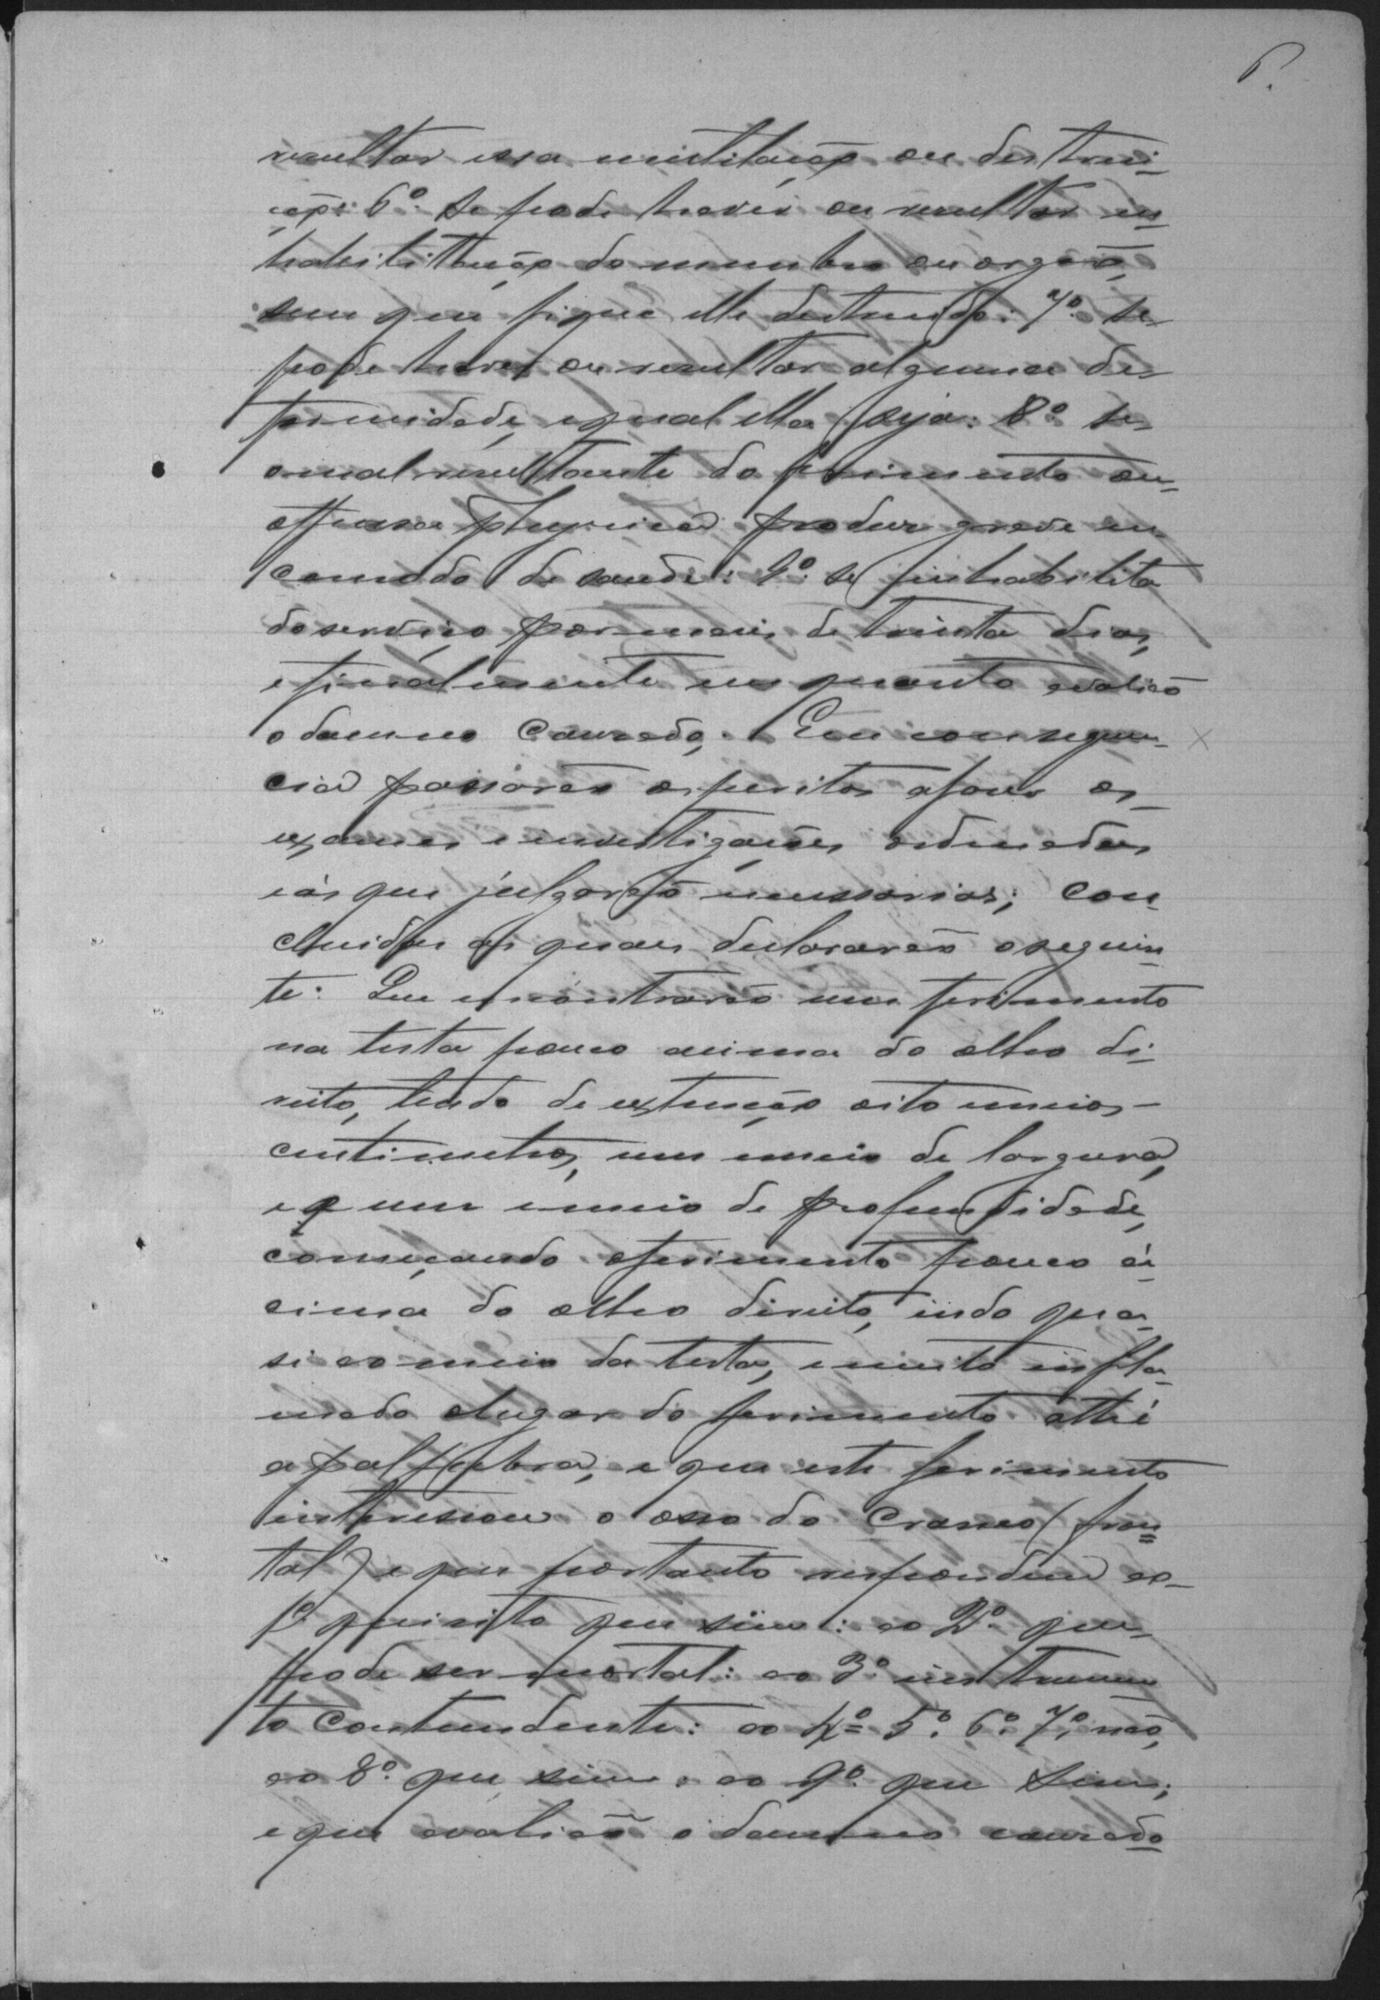 6.
resultar essa mutilação ou destrui-
ção: 6º se pode haver ou resultar in-
habilitação do membro ou orgão,
sem que fique elle destruido: 7º se
pode haver ou resultar alguma de-
formidade, e qual ella seja: 8º se
o mal resultante do ferimento ou
offensa physica produz grave in-
commodo de saude: 9º se inhabilita
do serviço por mais de trinta dias,
e finalmente em quanto avalião
o damno causado. Em consequen-
cia passarão os peritos a fazer os
exames e investigações ordenadas
e ás que julgarão necessarias; con-
cluidas as quaes declararão o seguin-
te: Que encontrarão um ferimento
na testa pouco acima do olho di-
reito, tendo de extenção oito e meios
centimetros, um e meio de largura,
e um e meio de profundidade,
começando o ferimento pouco á-
cima do olho direito, indo qua-
si ao meio da testa, e muito infla-
mado o lugar do ferimento athé
a palpebra, e que este ferimento
interessou o osso do craneo (fron-
tal) e que portanto respondem ao
1º quisito que sim: ao 2º que
pode ser mortal: ao 3º instrumen
to contundente: ao 4º 5º 6º 7º não,
ao 8º que sim: ao 9º que sim;
e que avalião o damno causado